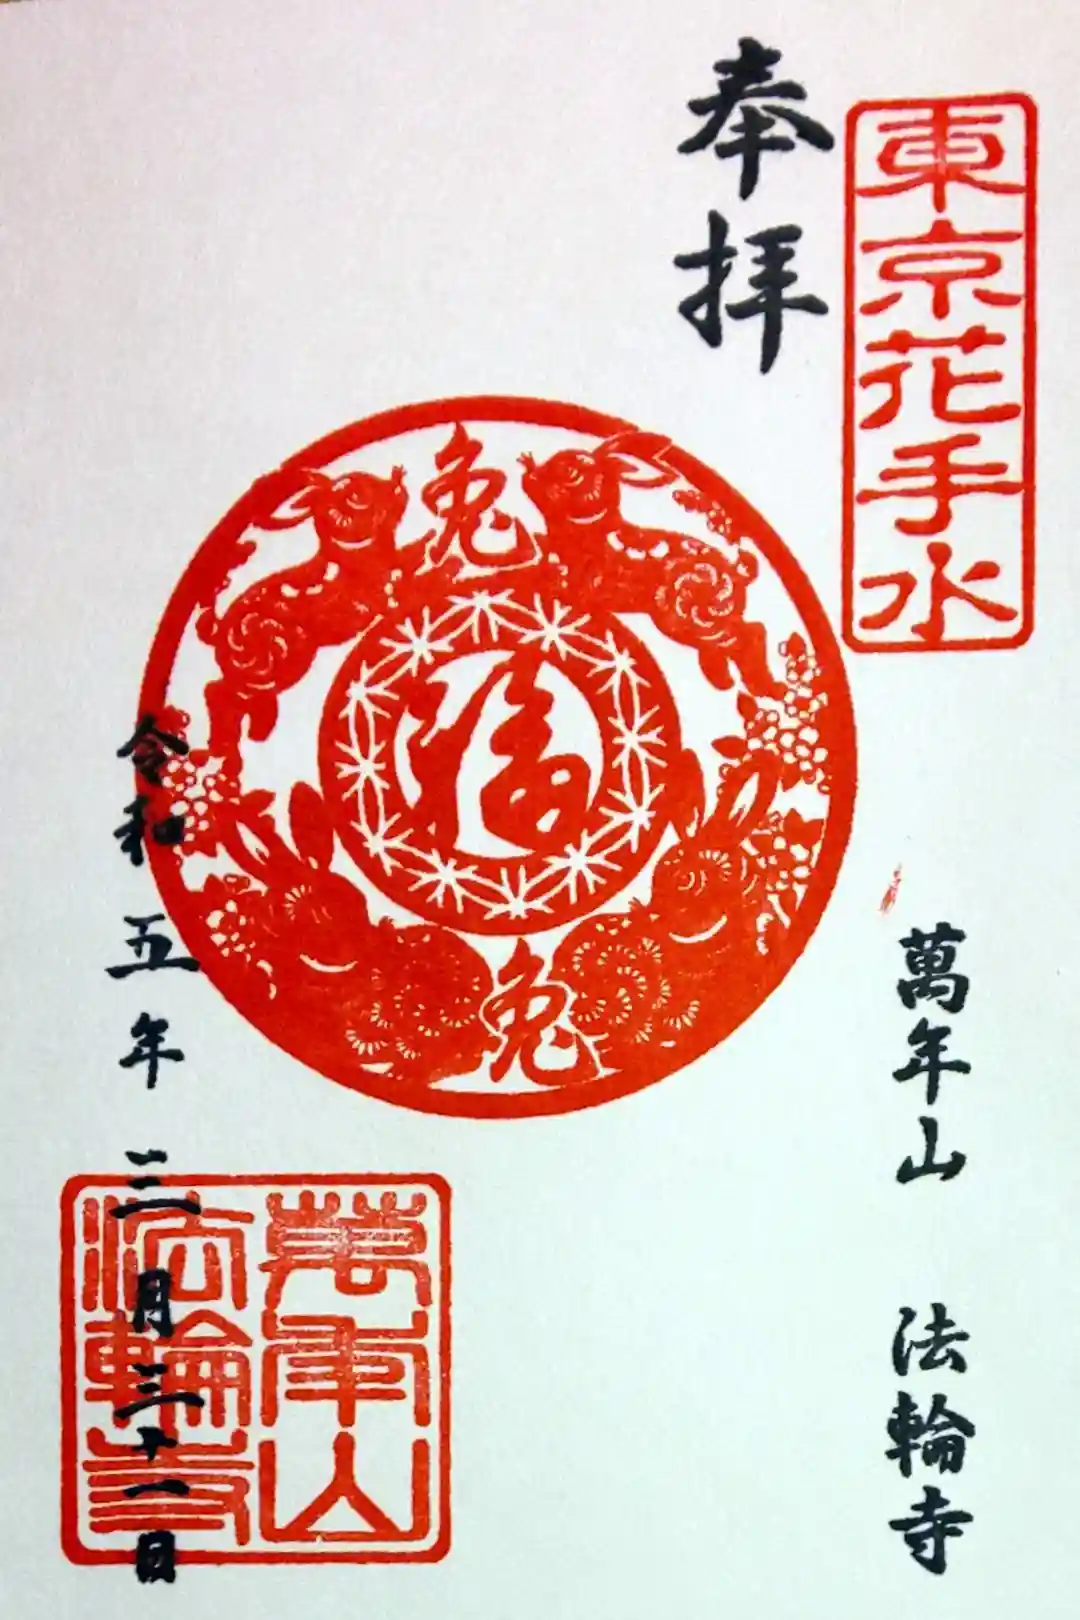 東京花手水
奉拝
萬年山 法輪寺
兔
福
兔
萬年山
法輪寺
令和五年三月三十一日